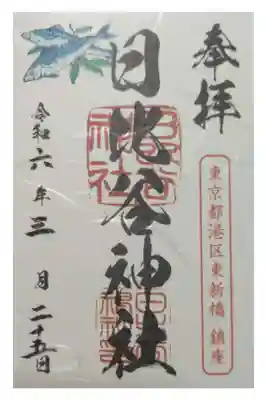 奉拝
東京都港区東新橋 鎮座
日比谷神社
令和六年三月二十五日